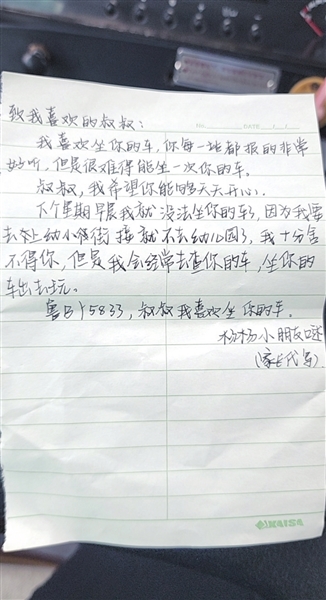 No. DATE / /
致我喜欢的叔叔：
我喜欢坐你的车，你每一站都报的非常
好听，但是很难得能坐一次你的车。
叔叔，我希望你能够天天开心。
下个星期早晨我就没法坐你的车了，因为我要
去上幼小衔接就不去幼儿园了，我十分舍
不得你，但是我会经常去查你的车，坐你的
车出去玩。
鲁B 5833，叔叔我喜欢坐你的车。
杨杨小朋友
(家长代写)